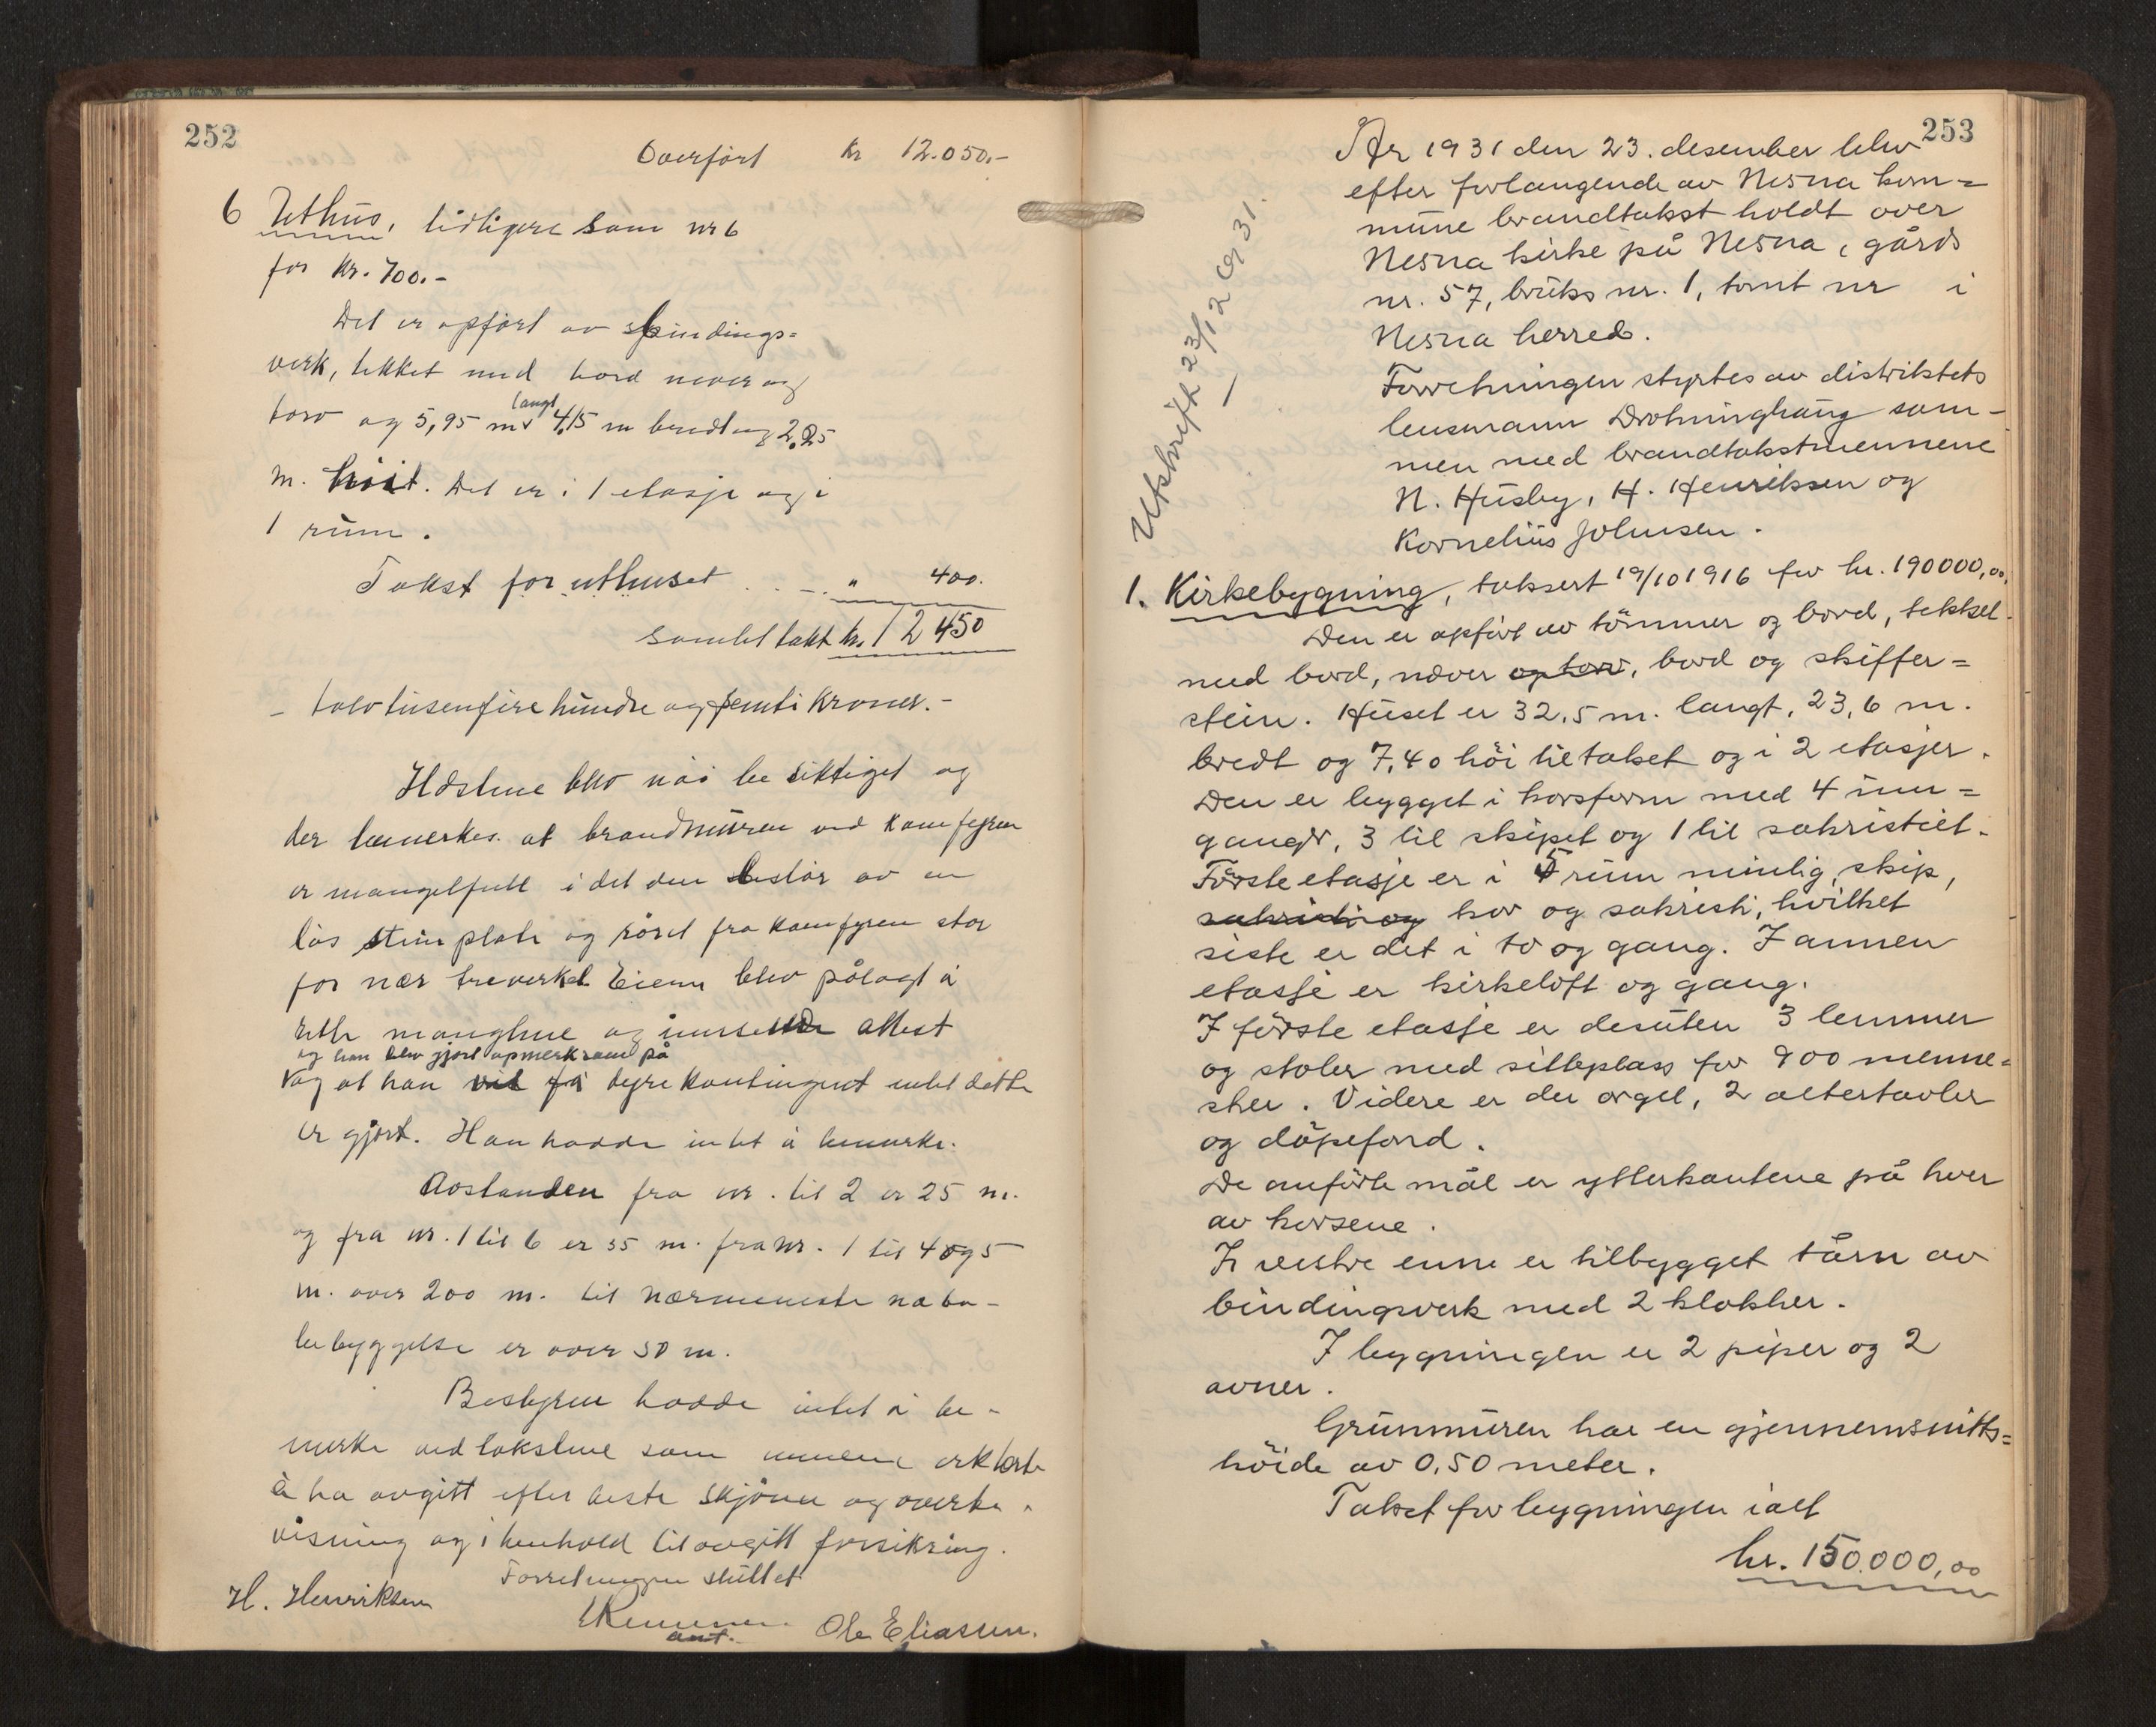 252
Overført kr 12.050.-
6 Uthus, tidligere som nr 6
for kr. 700.-
Det er opført av bindings=
verk, tekket med bord never og
torv og 5,95 m langt 4,15 m bredt og 2,25
m. høit. Det er i 1 etasje og i
1 rum.
Takst for uthuset . . - . " 400.
samlet takt kr. 12 450
- tolv tusen fire hundre og femti kroner. -
Husene blev nøi besiktiget og
der bemerkes at brandmuren ved komfyren
er mangelfull i det den består av en
løs stein plate og røret fra komfyren står
for nær treverket. Eieren blev pålagt å
rette manglene og innsende attest
og han blev gjort opmerksom på
og at han vil få dyre kontingent intet dette
er gjort. Han hadde intet å bemerke.
Avstanden fra nr. til 2 er 25 m.
og fra nr. 1 til 6 er 35 m. fra nr. 1 til 4 og 5
m. over 200 m. til nærmeneste nabo-
bebyggelse er over 50 m.
Bestyren hadde intet å be-
merke ved takstene som mennene erklærte
å ha avgitt efter beste skjønn og overbe-
visning og i henhold til avgitt forsikring.
Forretningen sluttet
H. Henriksen
ant. Ole Eliassen.
253
År 1931 den 23. desember blev
efter forlangende av Nesna kom=
mune brandtakst holdt over
Nesna kirke på Nesna, gårds
nr. 57, bruks nr. 1, tomt nr i
Nesna herred.
Forretningen styrtes av distriktets
lensmann Drotninghaug sam-
men med brandtakstmennene
N. Husby, H. Henriksen og
Kornelius Johnsen.
Utskrift 23/12 1931.
1. Kirkebygning, taksert 19/10 1916 for kr. 190000,00.
Den er opført av tømmer og bord, tekket
med bord, never og torv, bord og skiffer=
stein. Huset er 32,5 m. langt, 23,6 m.
bredt og 7,40 høi til taket og i 2 etasjer.
Den er bygget i korsform med 4 inn=
ganger, 3 til skipet og 1 til sakristiet.
Første etasje er i 5 rum nemlig, skip,
sakristi og kor og sakristi, hvilket
siste er det i to og gang. I annen
etasje er kirkeloft og gang.
I første etasje er desuten 3 lemmer
og stoler med sitteplass for 900 menne=
sker. Videre er der orgel, 2 altertavler
og døpefond.
De anførte mål er ytterkantene på hver
av korsene.
I vestre enne er tilbygget tårn av
bindingsverk med 2 klokker.
I bygningen er 2 piper og 2
ovner.
Grunmuren har en gjennemsnitts=
høide av 0,50 meter.
Takst for bygningen ialt
kr. 150.000,00